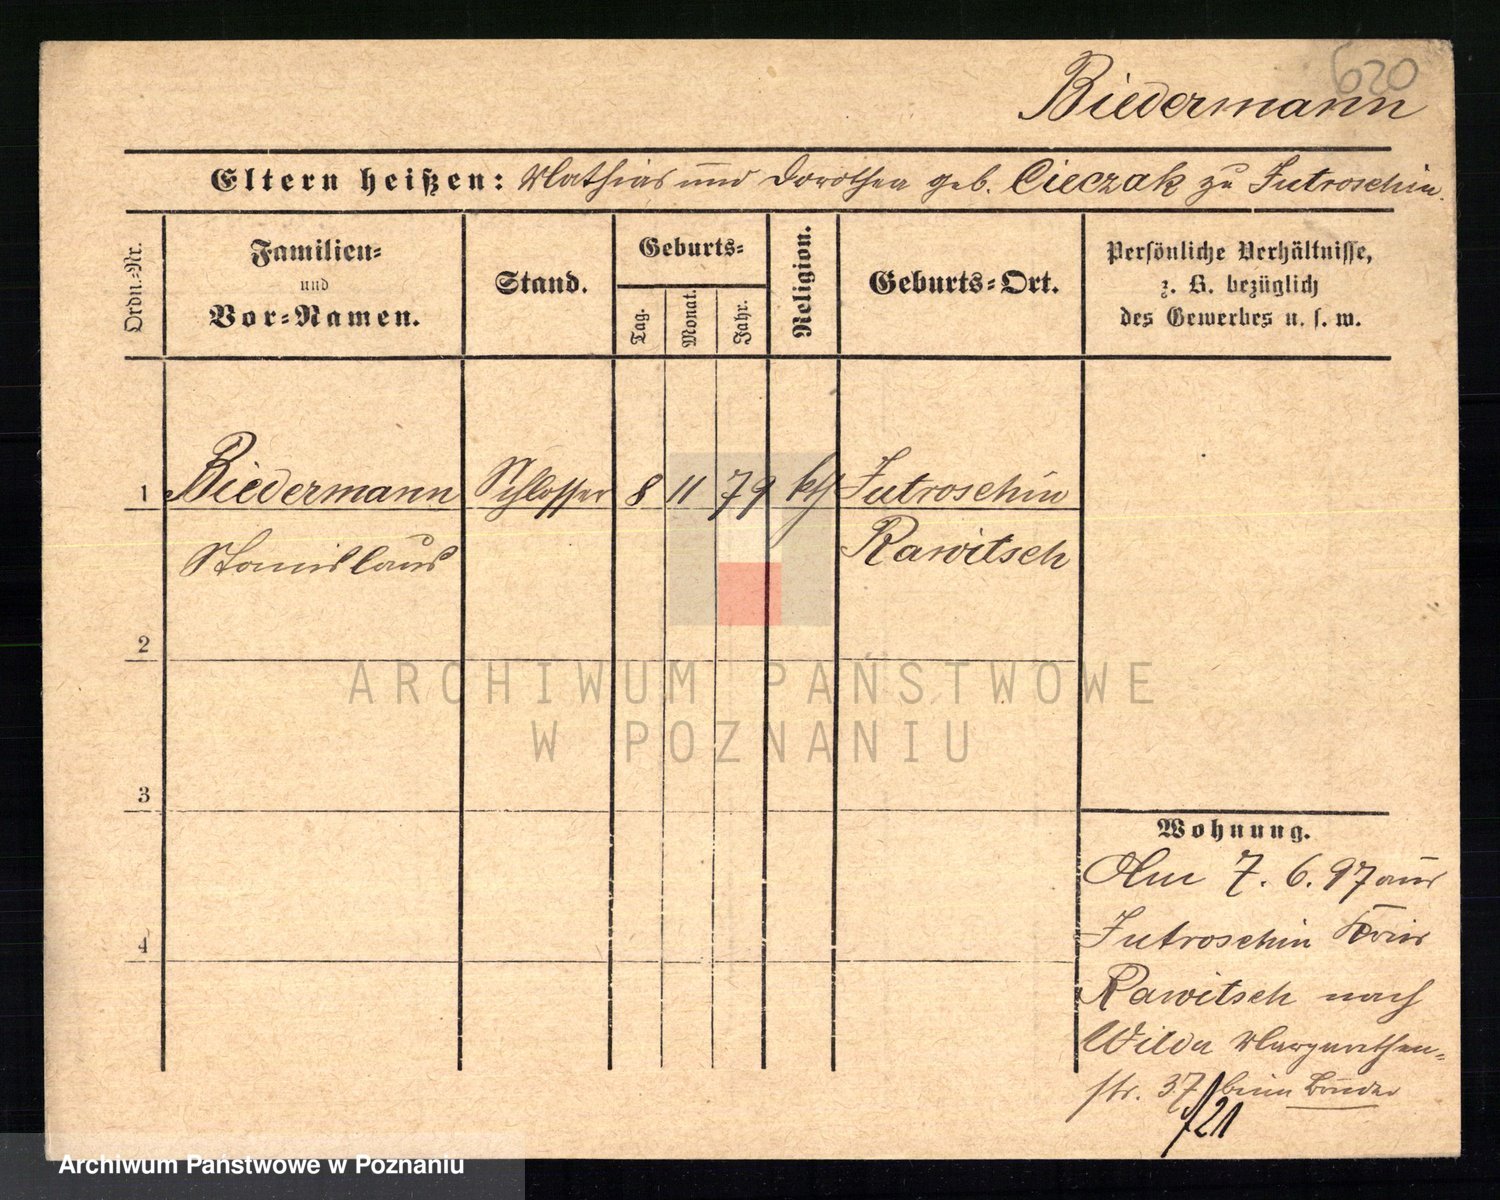 620
Biedermann
Eltern heißen: Mathias und Dorothea geb. Cieczak zu Jutroschin.
Ordn.-Nr.
Familien- und Vor-Namen.
Stand.
Geburts-
Tag.
Monat.
Jahr.
Religion.
Geburts-Ort.
Persönliche Verhältnisse,
z. B. bezüglich
des Gewerbes u. s. w.
1 Biedermann Schlosser 8 11 79 kth Jutroschin
Stanislaus Rawitsch
2
3
4
Wohnung.
Am 7. 6. 97 aus
Jutroschin Kreis
Rawitsch nach
Wilda Margarethen-
str. 37 beim Bruder
/21
ARCHIWUM PAŃSTWOWE
W POZNANIU
Archiwum Państwowe w Poznaniu